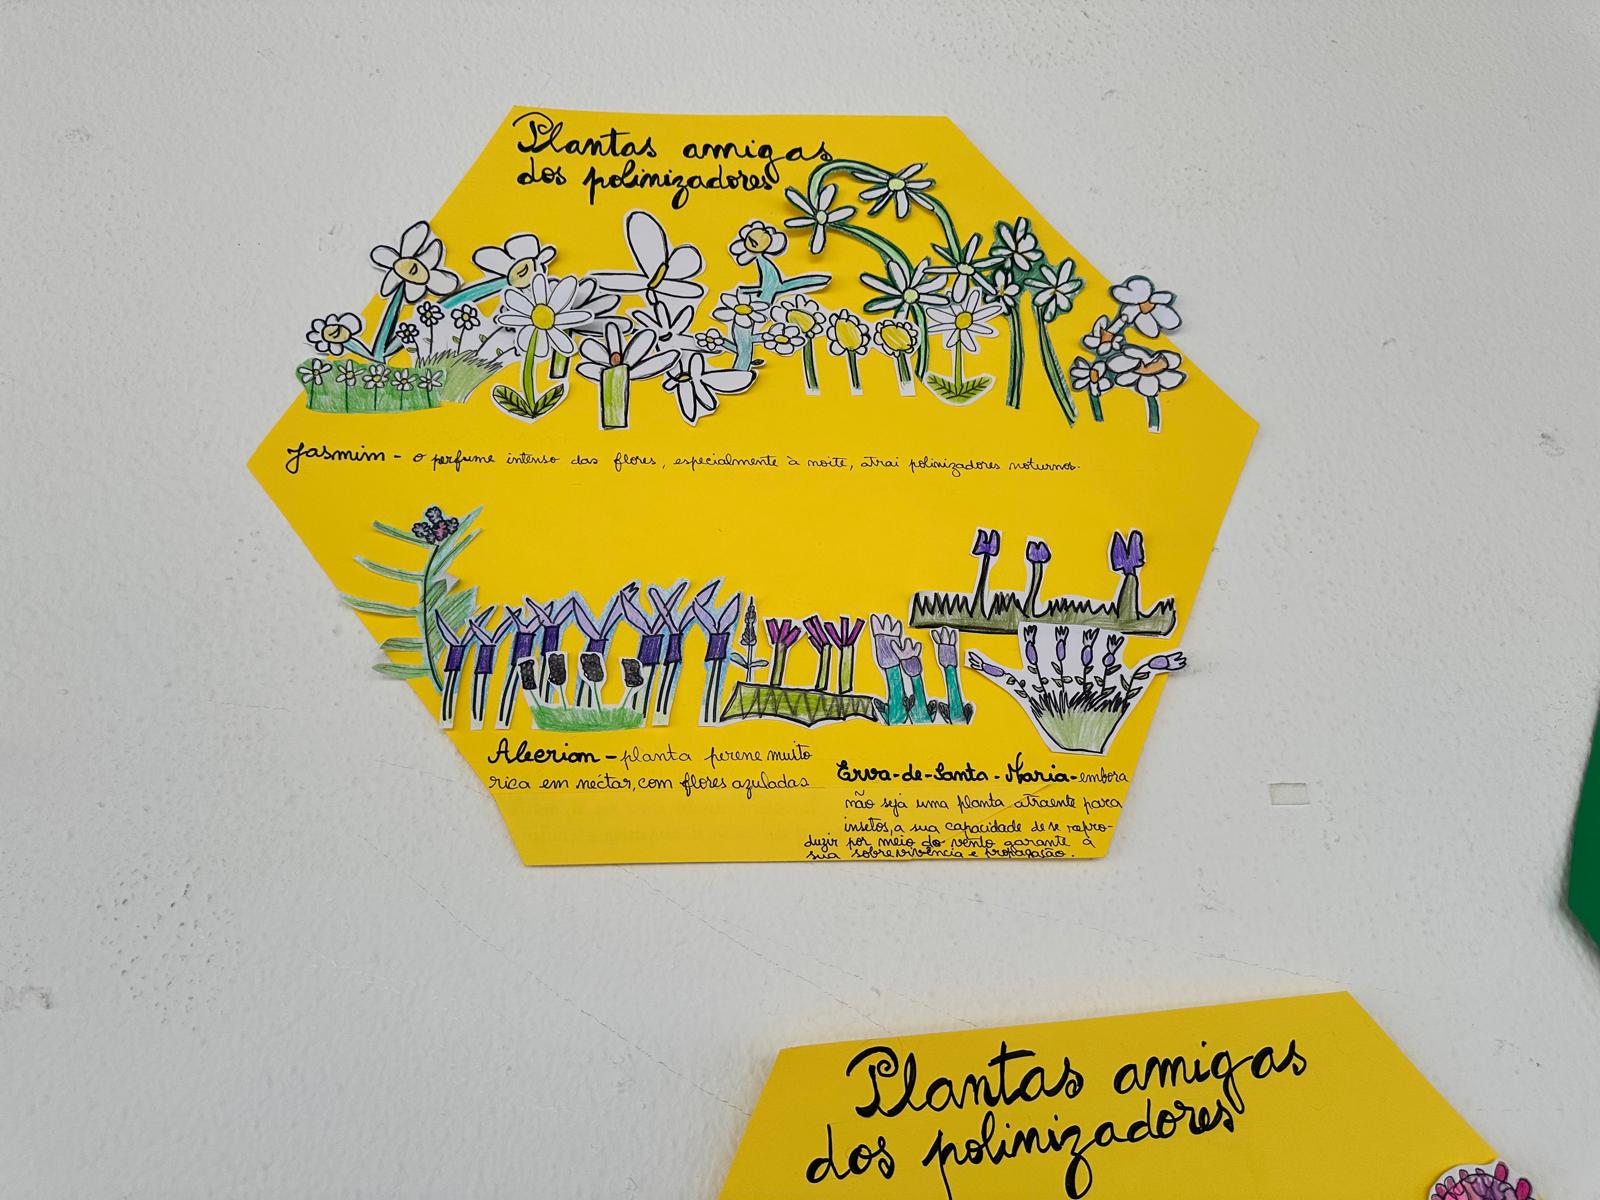 Plantas amigas
dos polinizadores
Jasmim - o perfume intenso das flores, especialmente à noite, atrai polinizadores noturnos.
Alecrim - planta perene muito
rica em néctar, com flores azuladas
Erva-de-Santa-Maria - embora
não seja uma planta atraente para
insetos, a sua capacidade de se repro-
duzir por meio do vento garante a
sua sobrevivência e propagação.
Plantas amigas
dos polinizadores